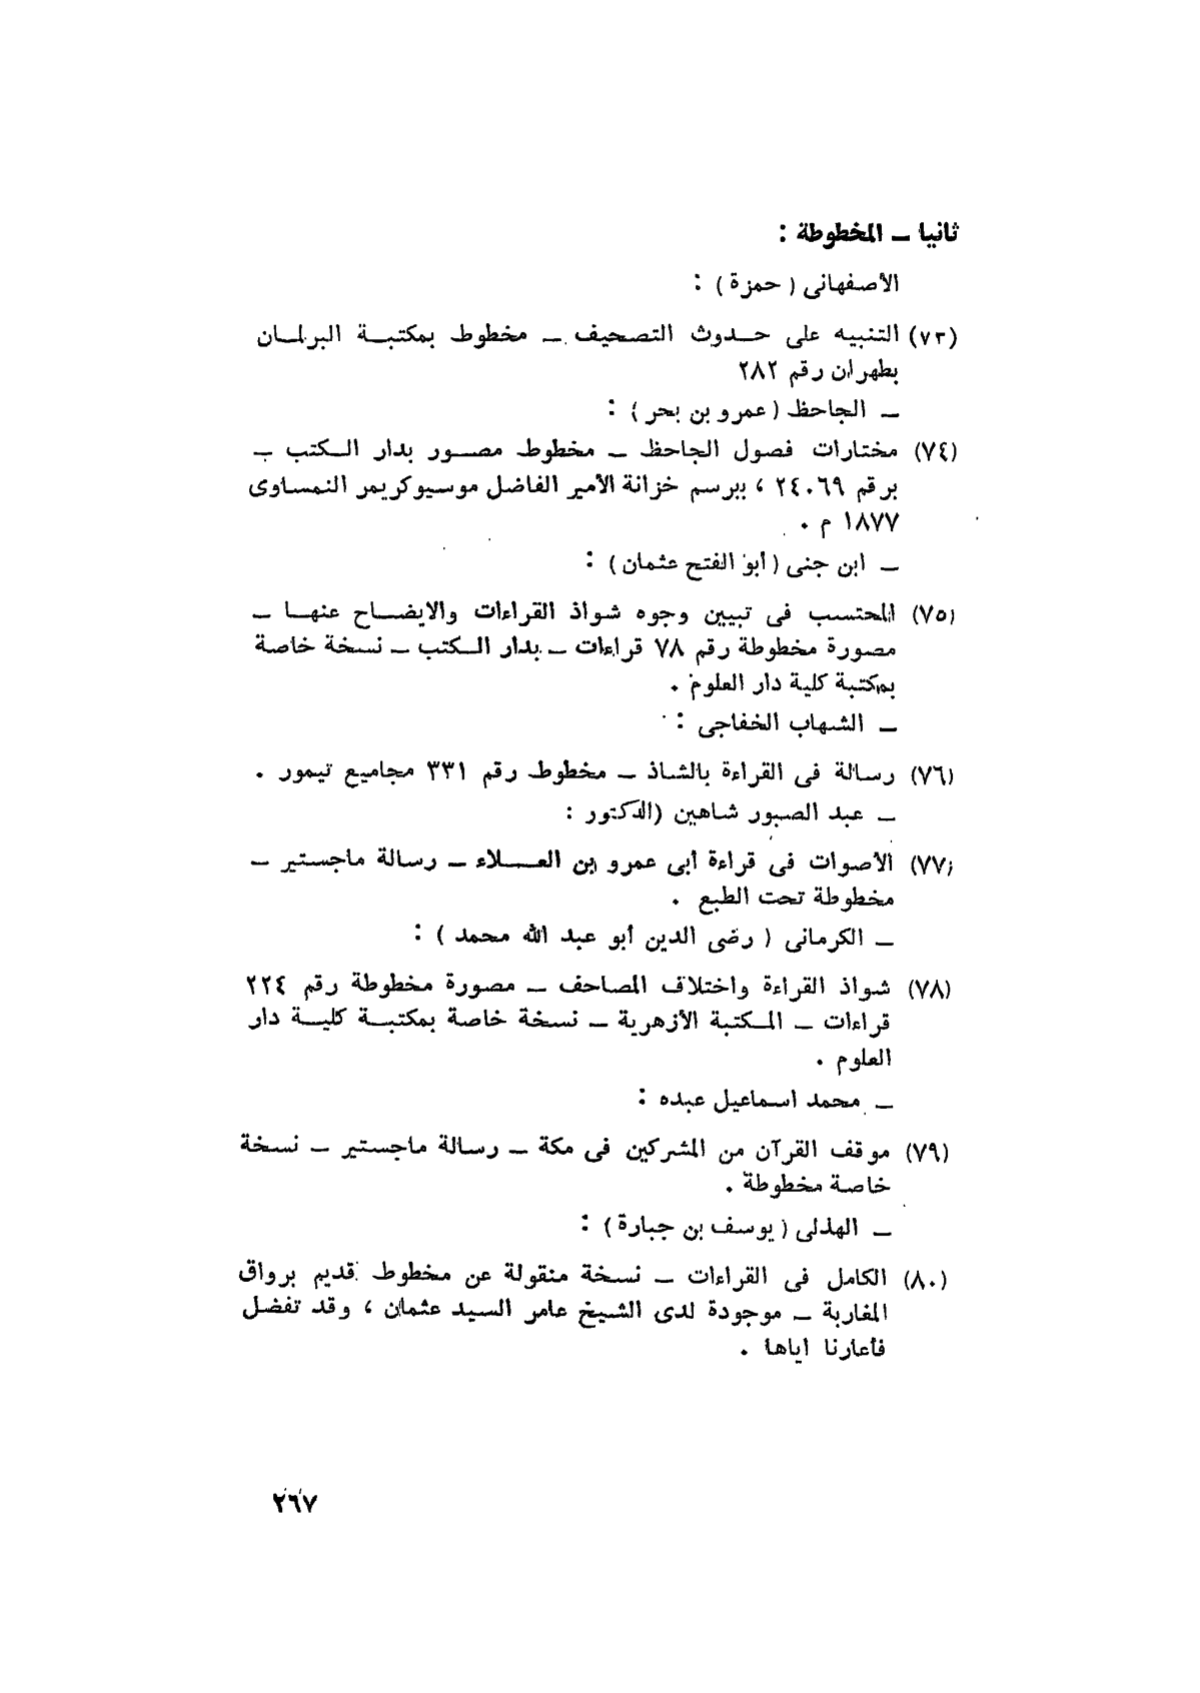 ثانيا ــ المخطوطة :
الأصفهانى ( حمزة ) :
(٧٣) التنبيه على حـدوث التصحيف ــ مخطوط بمكتبـة البرلمـان
بطهران رقم ٢٨٢
ــ الجاحظ ( عمرو بن بحر ) :
(٧٤) مختارات فصول الجاحظ ــ مخطوط مصـور بدار الـكتب ــ
برقم ٢٤٠٦٩ ، برسم خزانة الأمير الفاضل موسيو كريمر النمساوى
١٨٧٧ م .
ــ ابن جنى ( أبو الفتح عثمان ) :
(٧٥) المحتسب فى تبيين وجوه شواذ القراءات والايضـاح عنهـا ــ
مصورة مخطوطة رقم ٧٨ قراءات ــ بدار الـكتب ــ نسخة خاصة
بمكتبة كلية دار العلوم .
ــ الشهاب الخفاجى :
(٧٦) رسالة فى القراءة بالشاذ ــ مخطوط رقم ٣٣١ مجاميع تيمور .
ــ عبد الصبور شاهين (الدكتور :
(٧٧) الأصوات فى قراءة أبى عمرو بن العـلاء ــ رسالة ماجستير ــ
مخطوطة تحت الطبع .
ــ الكرمانى ( رضى الدين أبو عبد الله محمد ) :
(٧٨) شواذ القراءة واختلاف المصاحف ــ مصورة مخطوطة رقم ٢٢٤
قراءات ــ المـكتبة الأزهرية ــ نسخة خاصة بمكتبـة كليـة دار
العلوم .
ــ محمد اسماعيل عبده :
(٧٩) موقف القرآن من المشركين فى مكة ــ رسالة ماجستير ــ نسخة
خاصة مخطوطة .
ــ الهذلى ( يوسف بن جبارة ) :
(٨٠) الكامل فى القراءات ــ نسخة منقولة عن مخطوط قديم برواق
المغاربة ــ موجودة لدى الشيخ عامر السيد عثمان ، وقد تفضل
فأعارنا اياها .
٢٦٧